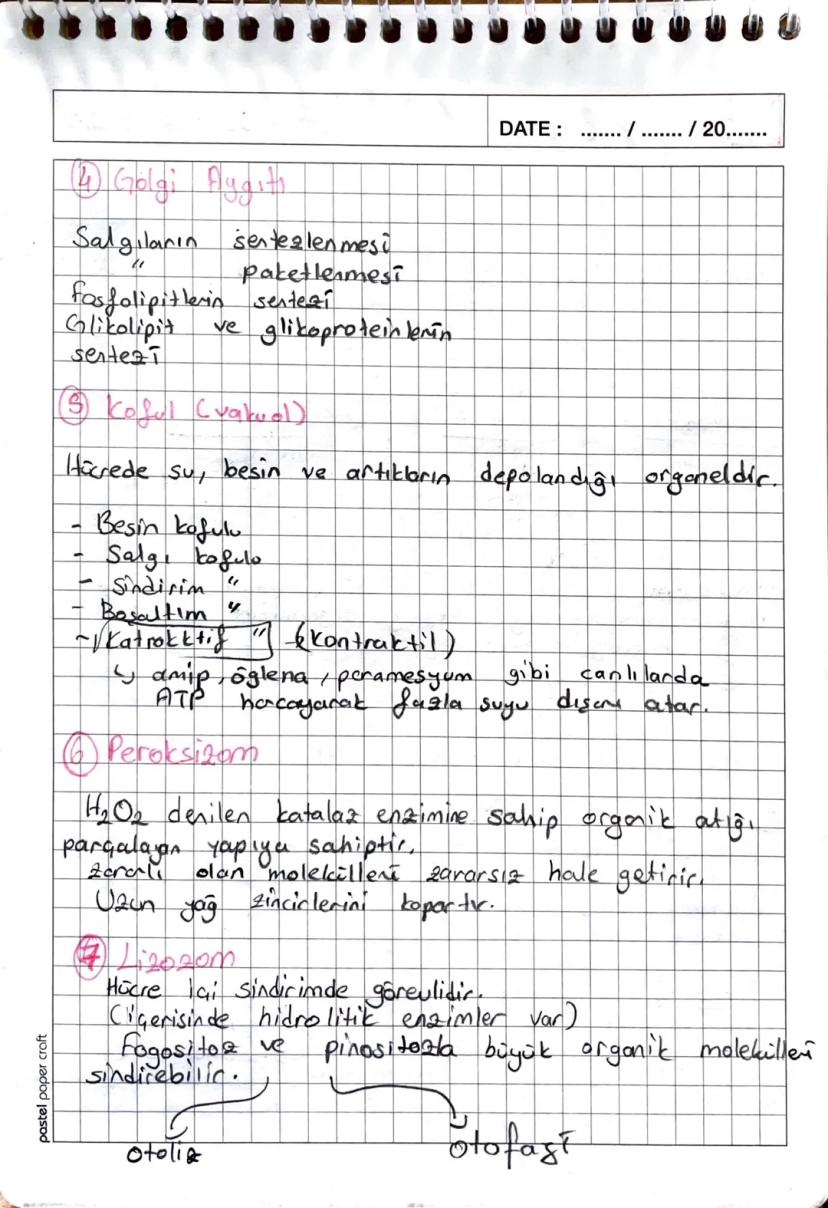 DATE : ....... / ....... / 20.......
④ Golgi Aygıtı
Salgıların sentezlenmesi
" paketlenmesi
fosfolipitlerin sentezi
Glikolipit ve glikoproteinlerin
sentezi
⑤ Koful (vakuol)
Hücrede su, besin ve artıkların depolandığı organeldir.
- Besin kofulu
- Salgı kofulu
- Sindirim "
- Boşaltım "
- Katroktif " (Kontraktil)
↳ amip, öglena, paramesyum gibi canlılarda
ATP harcayarak fazla suyu dışarı atar.
⑥ Peroksizom
H₂O₂ denilen katalaz enzimine sahip organik atığı
parçalayan yapıya sahiptir.
zararlı olan molekülleri zararsız hale getirir.
Uzun yağ zincirlerini kopartır.
⑦ Lizozom
Hücre içi sindirimde görevlidir.
(içerisinde hidrolitik enzimler var)
Fagositoz ve pinositozla büyük organik molekülleri
sindirebilir.
otoliz otofaji
pastel paper craft